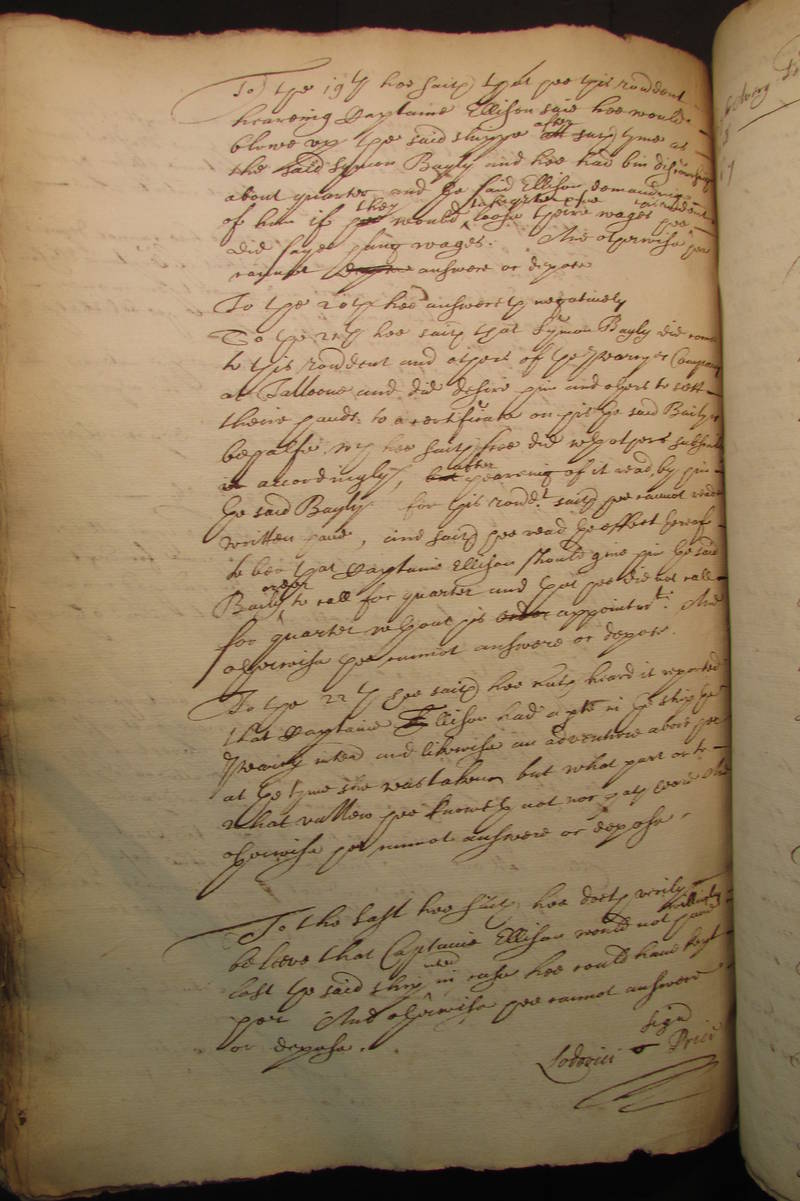 To the 19th hee saith that hee this rendent
heareing Captaine Ellison said hee would
blowe up the said shippe att after such tyme as
the said Symon Bayly and hee had bin discoursing
about quarter and the said Ellison demanding
of him if hee they would loose theire wages hee
did saye hang wages. And otherwise hee
cannot depose answere or depose
To the 20th hee answereth negatively
To the 21th hee saith that Symon Bayly did come
to this rendent and others of the Company
at and did desire him and others to sett
theire hands to a certificate on his the said Baily's
behalfe, wch hee saith hee did wth others subscribe
accordingly, but after heareing of it read, by him
the said Bayly for this rendt saith hee cannot reade
written hand, and saith hee read the effect thereof
to bee that Captaine Ellison should give him the said
Baily order to call for quarter and that hee did not call
for quarter wthout his order appointmt: And
otherwise hee cannot answere or depose.
To the 22th hee saith hee hath heard it reported
that Captaine Ellison had a pte in the shipp the
and likewise an adventure abord her
at the tyme she was taken, but what part or to
what vallew hee knoweth not nor hath heard And
otherwise hee cannot answere or depose.
To the last hee saith hee doth verily
beleeve that Captaine Ellison would not willingly have
lost the said shipp in case hee could have kept
her And otherwise hee cannot answere
or depose.
signe
Lodovici Price